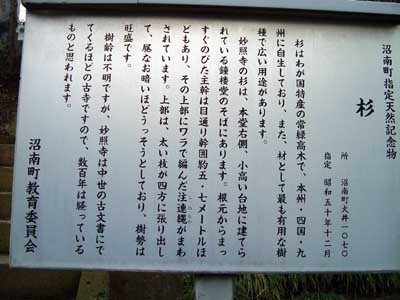 沼南町指定天然記念物
杉
所 沼南町大井一〇七〇
指定 昭和五十年十二月
杉はわが国特産の常緑高木で、本州・四国・九
州に自生しており、また、材として最も有用な樹
種で広い用途があります。
妙照寺の杉は、本堂右側、小高い台地に建てら
れている鐘楼堂のそばにあります。根元からまっ
すぐのびた主幹は目通り幹囲約五・七メートルほ
どもあり、その上部にワラで編んだ注連縄がまわ
されています。上部は、太い枝が四方に張り出し
て、昼なお暗いほどうっそうとしており、樹勢は
旺盛です。
樹齢は不明ですが、妙照寺は中世の古文書にで
てくるほどの古寺ですので、数百年は経っている
ものと思われます。
沼南町教育委員会